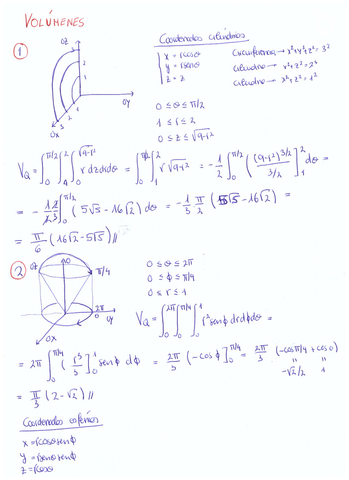 VOLÚMENES
1
Coordenadas cilíndricas
x = rcosθ
y = rsenθ
z = z
Circunferencia → x²+y²+z² = 3²
cilindro → x²+z² = 2²
cilindro → x²+z² = 1²
0 ≤ θ ≤ π/2
1 ≤ r ≤ 2
0 ≤ z ≤ √9-r²
V_Q = ∫₀^{π/2} ∫₁² ∫₀^{√9-r²} r dzdrdθ = ∫₀^{π/2} ∫₁² r √9-r² = -1/2 ∫₀^{π/2} ((9-r²)^{3/2} / 3/2 ]₁² dθ =
(5√5 - 16√2) dθ = -1/3 π/2 (5√5 - 16√2) =
= π/6 (16√2 - 5√5) //
2
π/4
2π
0 ≤ θ ≤ 2π
0 ≤ ϕ ≤ π/4
0 ≤ r ≤ 1
V_Q = ∫₀^{2π} ∫₀^{π/4} ∫₀¹ r² senϕ drdϕdθ =
= 2π ∫₀^{π/4} (r³/3 ]₀¹ senϕ dϕ = 2π/3 (-cosϕ ]₀^{π/4} = 2π/3 (-cosπ/4 + cos0)
-√2/2 1
= π/3 (2-√2) //
Coordenadas esféricas
x = rcosθsenϕ
y = rsenθsenϕ